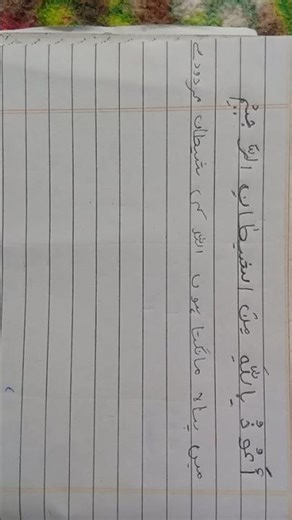 أَعُوْذُ بِاللّٰهِ مِنَ الشَّيْطَانِ الرَّجِيْمِ
میں پناہ مانگتا ہوں اللہ کی شیطان مردود سے